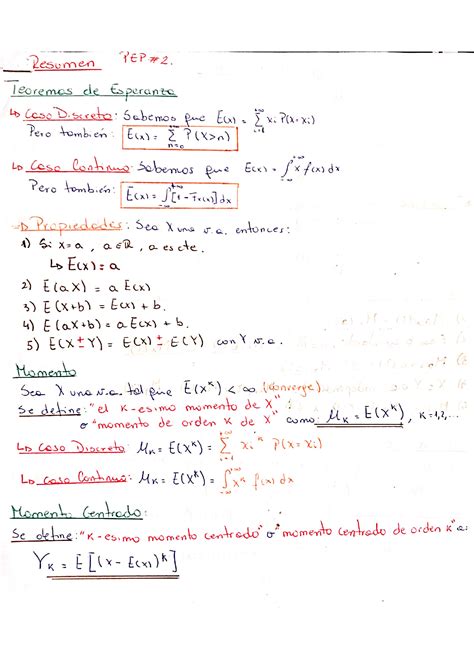 Resumen PEP #2.
Teoremas de Esperanza
↳ Caso Discreto: Sabemos que E(x) = Σ_{i=1}^{+∞} xi P(X=xi)
Pero también: E(x) = Σ_{n=0}^{+∞} P(X>n)
↳ Caso Continuo: Sabemos que E(x) = ∫_{-∞}^{+∞} x f(x) dx
Pero también: E(x) = ∫_{-∞}^{+∞} [1 - Fx(x)] dx
⇒ Propiedades: Sea X una v.a. entonces:
1) Si x=a, a∈ℝ, a es cte.
↳ E(x) = a
2) E(aX) = a E(x)
3) E(X+b) = E(x) + b.
4) E(aX+b) = a E(x) + b.
5) E(X ± Y) = E(X) ± E(Y) con Y v.a.
Momento
Sea X una v.a. tal que E(X^k) < ∞ (converge)
Se define: "el k-esimo momento de X"
o "momento de orden k de X" como μk = E(X^k), k=1,2,...
↳ Caso Discreto: μk = E(X^k) = Σ_{i=1}^{+∞} xi^k P(X=xi)
↳ Caso Continuo: μk = E(X^k) = ∫_{-∞}^{+∞} x^k f(x) dx
Momento Centrado:
Se define: "k-esimo momento centrado" o "momento centrado de orden k" a:
γk = E[(x - E(x))^k]